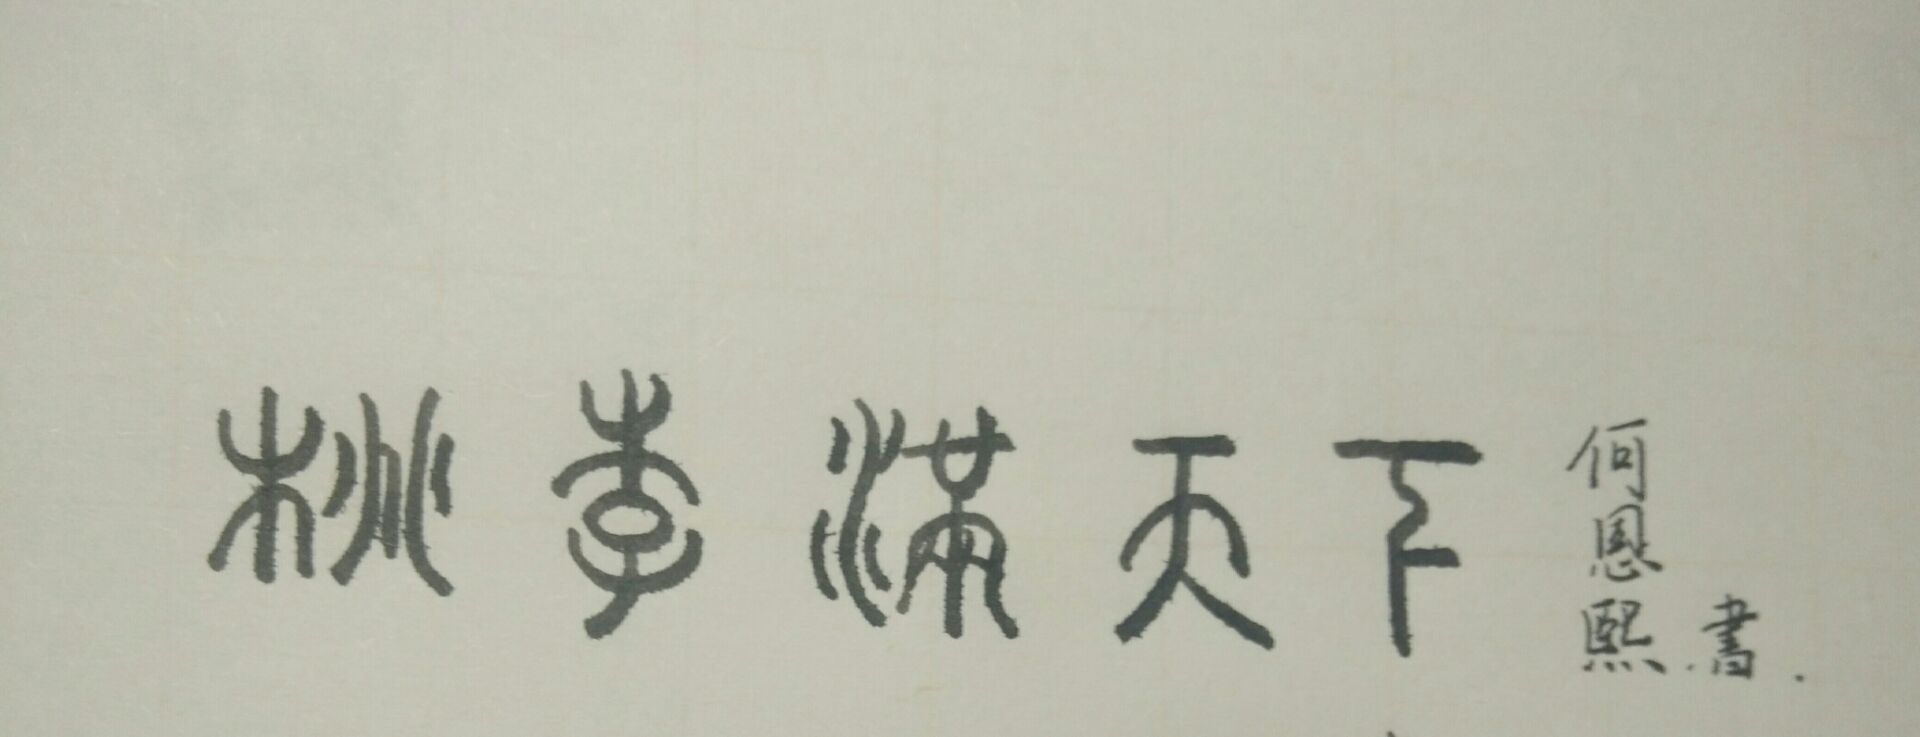 桃李满天下
何恩熙
書